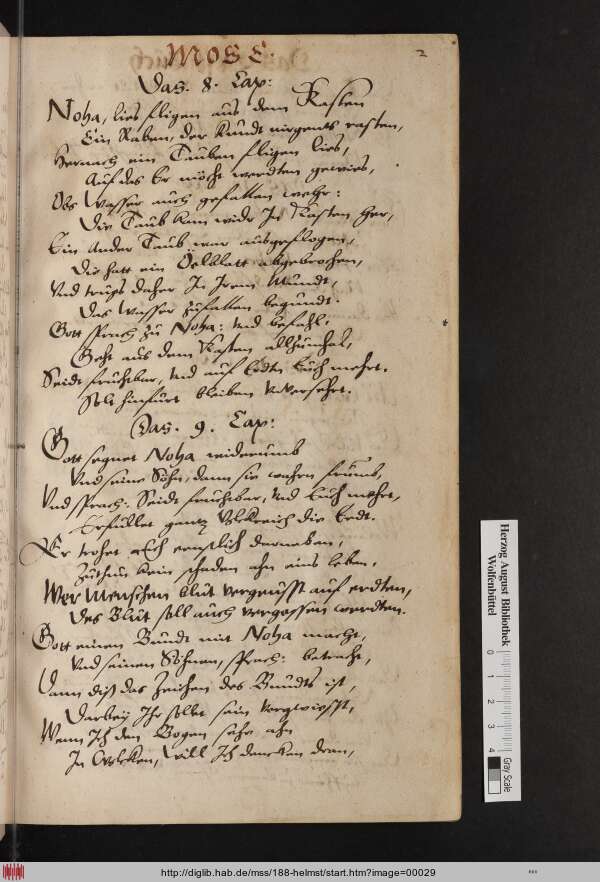 MOSE.
2
Das. 8. Cap:
Noha, lies fligen aus dem Kasten
Ein Raben, der kundt nirgents rasten,
Hernach ein Tauben fligen lies,
Auf das Er möcht werdten gewies,
Obs Wasser auch gefallen wehr:
Die Taub kam widr In Kasten her,
Ein Ander Taub war ausgeflogen,
Die hatt ein Öelblatt abgebrochen,
Vnd trugs daher In Irem Mundt,
Das Wasser zufallen begundt.
Gott sprach zu Noha: vnd befahl,
Geht aus dem Kasten allzumhal,
Seidt fruchtbar, vnd auf Erdtn Euch mehrt.
Solt hinfurt bleiben vnversehrt.
Das. 9. Cap:
Gott segnet Noha widerumb
Vnd seine Söhn, dann sie wahrn frumb,
Vnd sprach: Seidt fruchtbar, vnd Euch mehrt,
Erfullet gentzlich die Erdt.
Er trohet Euch ernstlich darneben,
Zuthun kein schaden ahn eins leben,
Wer Menschen blut vergeusst auf erdten,
Des Blut soll auch vergossen werdten.
Gott einen Bundt mit Noha macht,
Vnd seinen Söhnen, sprach: betracht,
Dann diß das Zeichen des Bundts ist,
Darbey Ihr sollet sein vergwiesst,
Wenn Ich den Bogen sehe ahn
In Wolcken, will Ich dencken dran,
Herzog August Bibliothek
Wolfenbüttel
0 1 2 3 4
Gray Scale
http://diglib.hab.de/mss/188-helmst/start.htm?image=00029